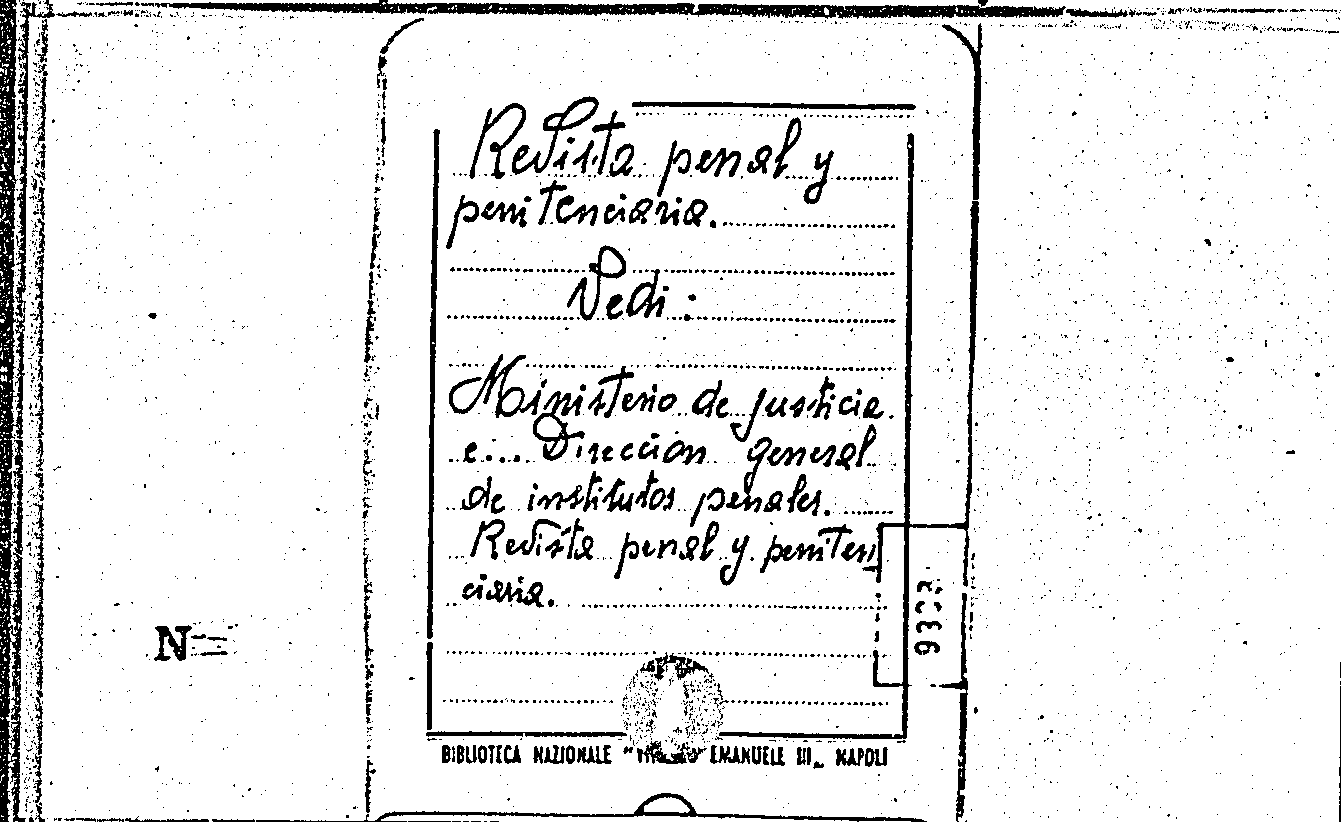 Revista penal y
penitenciaria.
Vedi:
Ministerio de justicia
e... Direccion general
de institutos penales.
Revista penal y peniten
ciaria.
N
BIBLIOTECA NAZIONALE " EMANUELE III„ NAPOLI